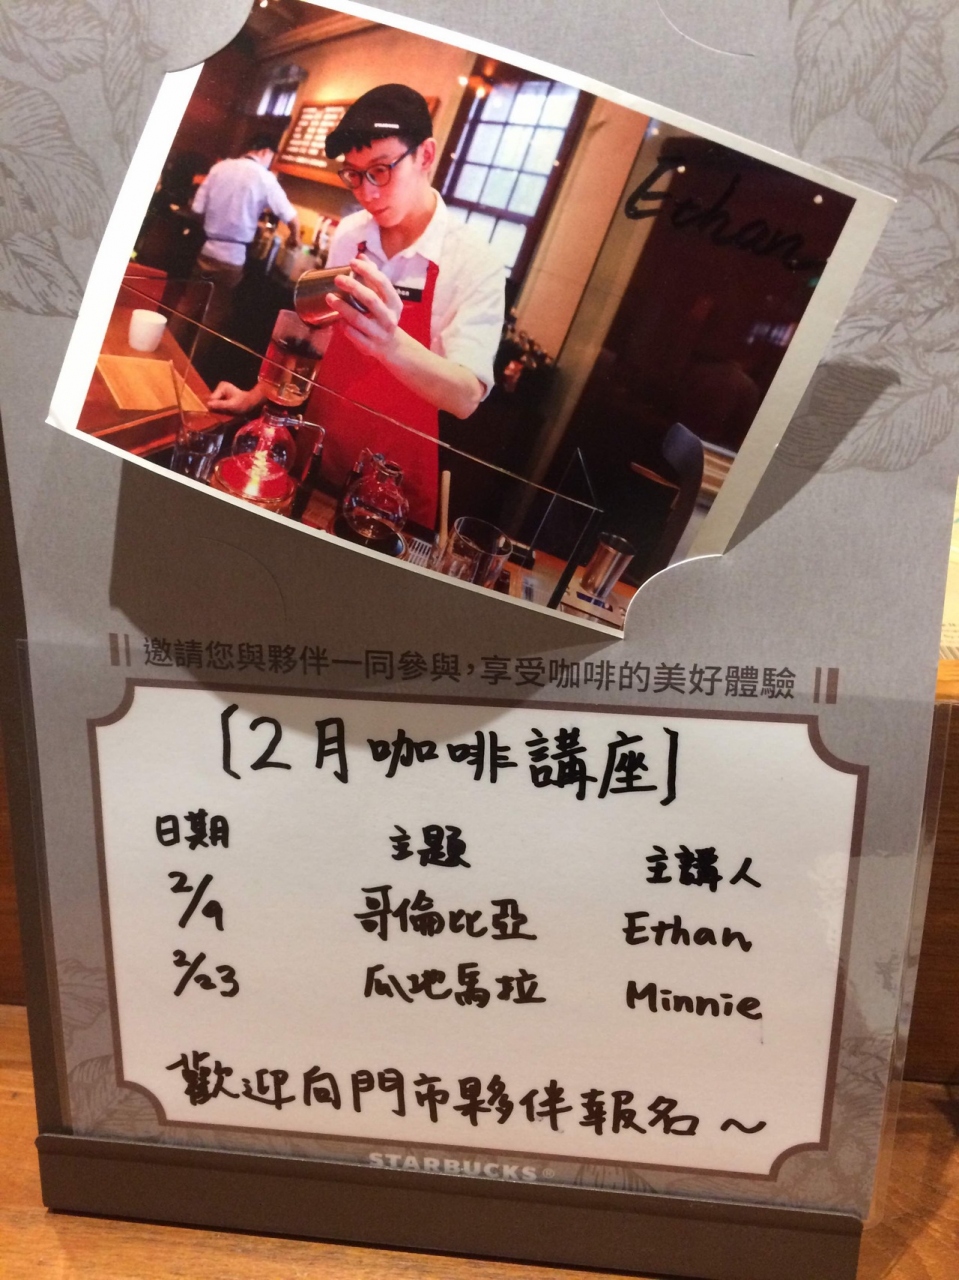 Ethan
邀請您與夥伴一同參與，享受咖啡的美好體驗
[2月咖啡講座]
日期 主題 主講人
2/9 哥倫比亞 Ethan
2/23 瓜地馬拉 Minnie
歡迎向門市夥伴報名~
STARBUCKS®